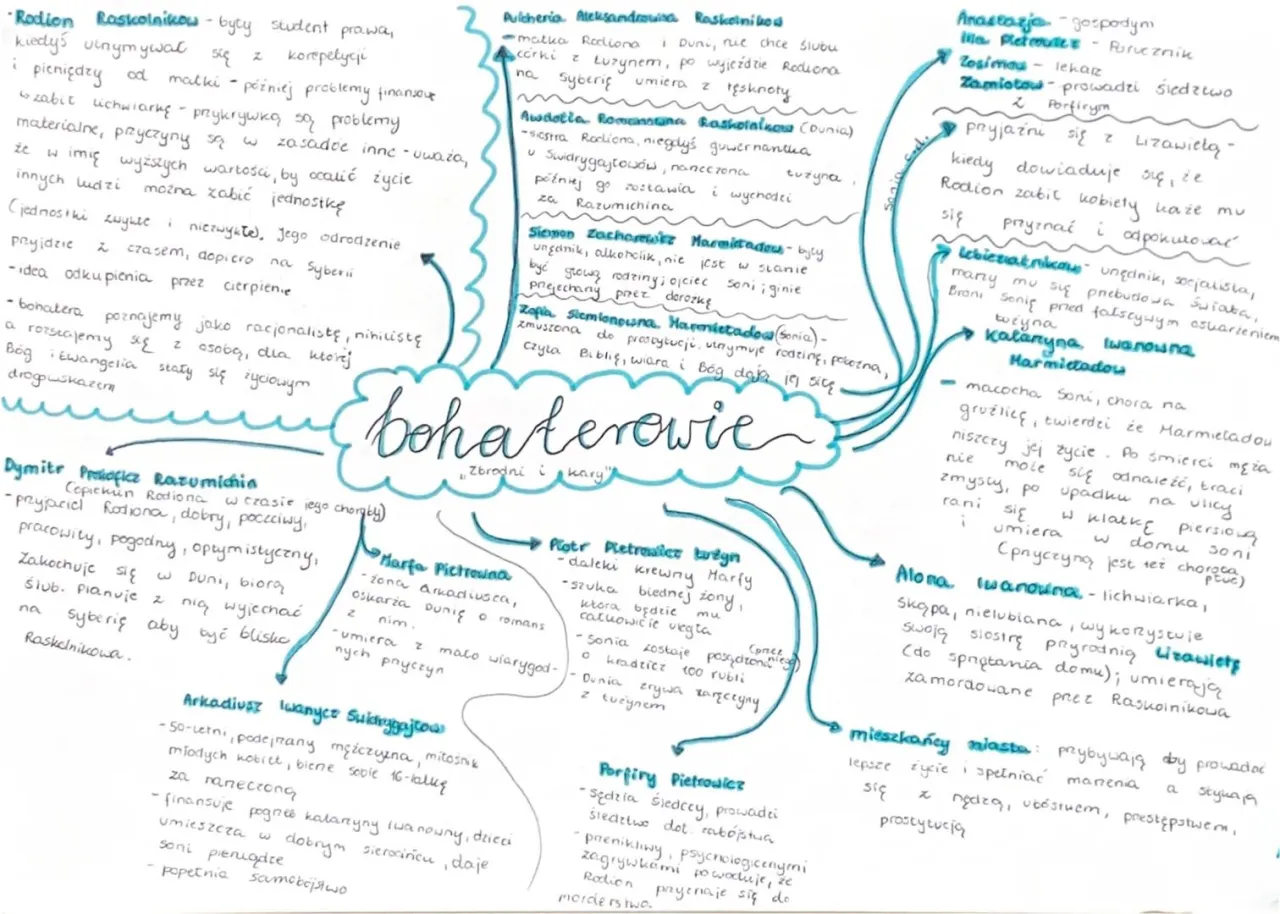 Rodion Raskolnikow - były student prawa,
kiedyś utrzymywać się z korepetycji
i pieniędzy od matki - później problemy finansowe
↳ zabił lichwiarkę - przykrywką są problemy
materialne, przyczyny są w zasadzie inne - uważa,
że w imię wyższych wartości, by ocalić życie
innych ludzi można zabić jednostkę
(jednostki zwykłe i niezwykłe), jego odrodzenie
przyjdzie z czasem, dopiero na Syberii
- idea odkupienia przez cierpienie
- bohatera poznajemy jako racjonalistę, nihilistę
a rozstajemy się z osobą, dla której
Bóg i Ewangelia stały się życiowym
drogowskazem
Pulcheria Aleksandrowna Raskolnikow
- matka Rodiona i Duni, nie chce ślubu
córki z Łużynem, po wyjeździe Rodiona
na Syberię umiera z tęsknoty
Awdotia Romanowna Raskolnikow (Dunia)
- siostra Rodiona, niegdyś guwernantka
u Swidrygajłowów, narzeczona Łużyna,
później go zostawia i wychodzi
za Razumichina
Siemion Zacharewicz Marmieładow - były
urzędnik, alkoholik, nie jest w stanie
być głową rodziny; ojciec Soni; ginie
przejechany przez dorożkę
Zofia Siemionowna Marmieładow (Sonia) -
zmuszona do prostytucji, utrzymuje rodzinę, pobożna,
czyta Biblię, wiara i Bóg dają jej siłę
Anastazja - gospodyni
Ilia Pietrowicz - Porucznik
Zosimow - lekarz
Zamiotow - prowadzi śledztwo
z Porfirym
Sonia cd.
przyjaźni się z Lizawietą -
kiedy dowiaduje się, że
Rodion zabił kobiety każe mu
się przyznać i odpokutować
Lebieziatnikow - urzędnik, socjalista,
marzy mu się przebudowa świata,
Broni Sonię przed fałszywym oskarżeniem
Łużyna
Katarzyna Iwanowna
Marmieładow
- macocha Soni, chora na
gruźlicę, twierdzi że Marmieładow
niszczy jej życie. Po śmierci męża
nie może się odnaleźć, traci
zmysły, po upadku na ulicy
rani się w klatkę piersiową
i umiera w domu Soni
(przyczyną jest też choroba
płuc)
bohaterowie
"Zbrodni i kary"
Dymitr Prokoficz Razumichin
(opiekun Rodiona w czasie jego choroby)
- przyjaciel Rodiona, dobry, poczciwy,
pracowity, pogodny, optymistyczny,
Zakochuje się w Duni, biorą
ślub. Planuje z nią wyjechać
na Syberię aby być blisko
Raskolnikowa.
Marfa Pietrowna
- żona Arkadiusza,
oskarża Dunię o romans
z nim.
- umiera z mało wiarygod-
nych przyczyn
Arkadiusz Iwanycz Swidrygajłow
- 50-letni, podejrzany mężczyzna, miłośnik
młodych kobiet, bierze sobie 16-latkę
za narzeczoną
- finansuje pogrzeb Katarzyny Iwanowny, dzieci
umieszcza w dobrym sierocińcu, daje
Soni pieniądze
- popełnia samobójstwo
Piotr Pietrowicz Łużyn
- daleki krewny Marfy
- szuka biednej żony,
która będzie mu
całkowicie uległa
- Sonia zostaje posądzona (przez niego)
o kradzież 100 rubli
- Dunia zrywa zaręczyny
z Łużynem
Porfiry Pietrowicz
- sędzia śledczy, prowadzi
śledztwo dot. zabójstwa
- przenikliwy, psychologicznymi
zagrywkami powoduje, że
Rodion przyznaje się do
morderstwa.
Alona Iwanowna - lichwiarka,
skąpa, nielubiana, wykorzystuje
swoją siostrę przyrodnią Lizawietę
(do sprzątania domu); umierają
zamordowane przez Raskolnikowa
mieszkańcy miasta: przybywają aby prowadzić
lepsze życie i spełniać marzenia a stykają
się z nędzą, ubóstwem, przestępstwem,
prostytucją